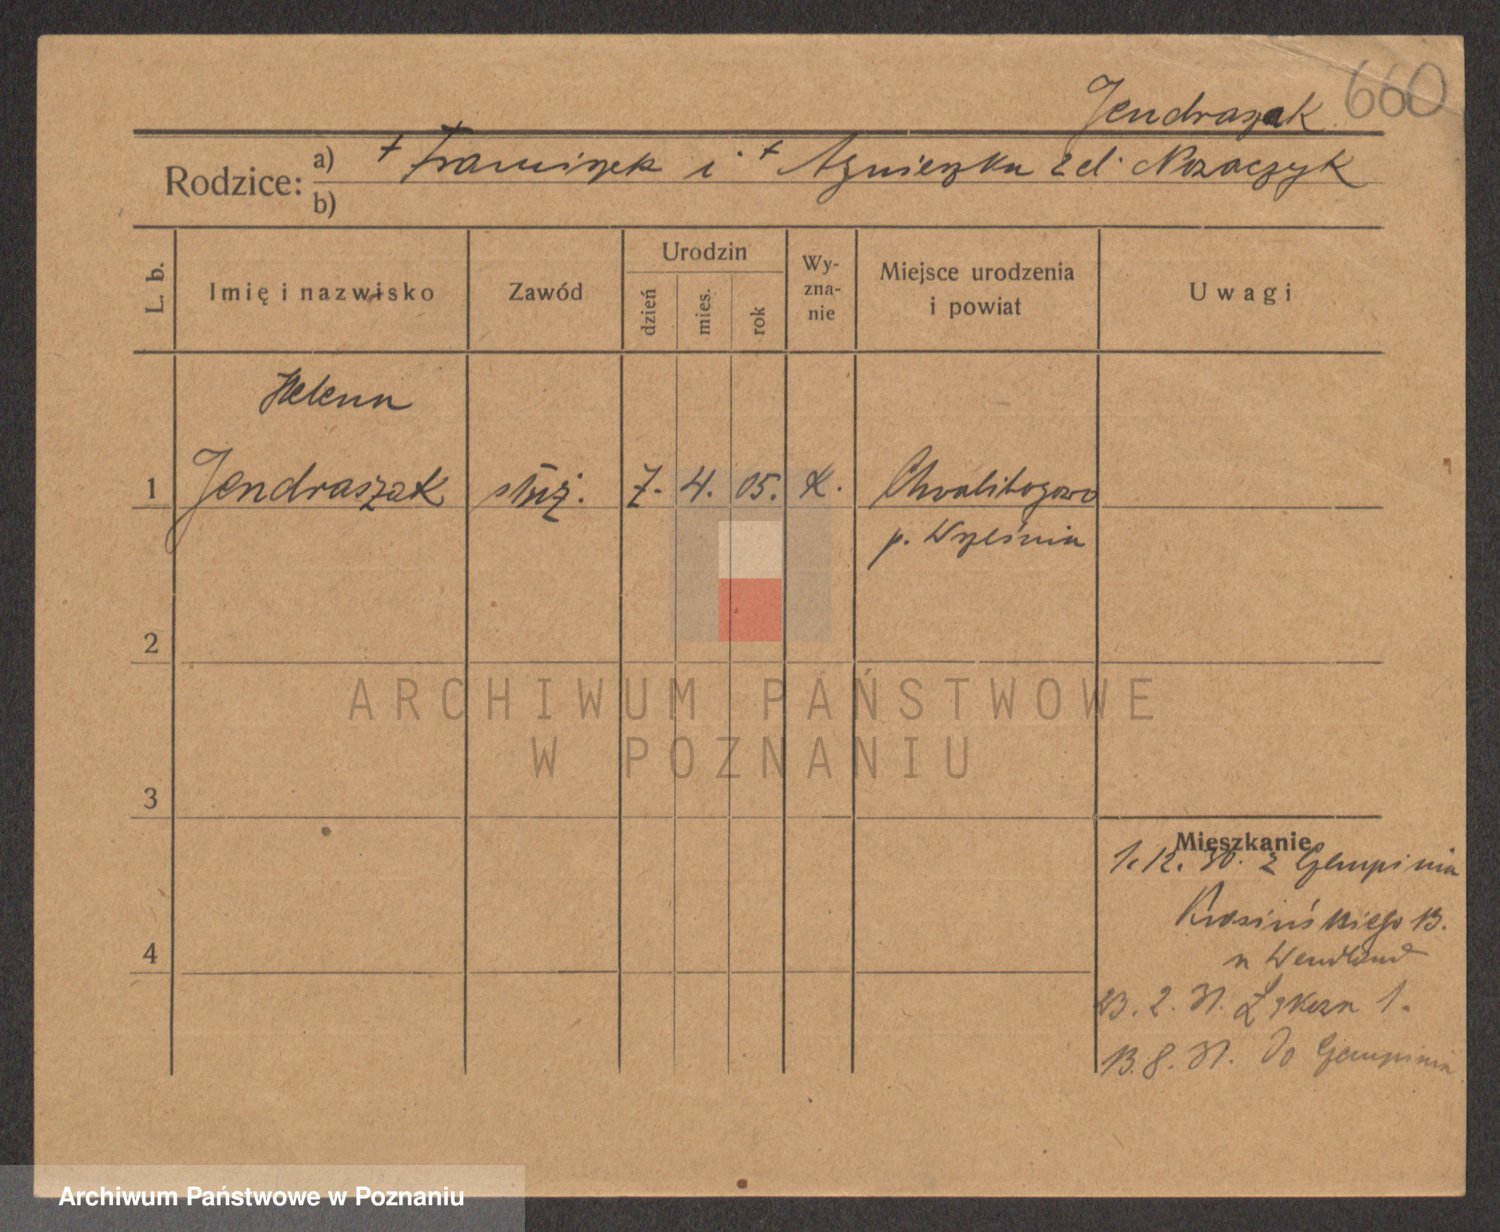 Jendraszak 660
Rodzice: a) + Franciszek i + Agnieszka z d. Nozaczyk
b)
L. b. Imię i nazwisko Zawód Urodzin dzień mies. rok Wy-zna-nie Miejsce urodzenia i powiat Uwagi
Helena
1 Jendraszak służ. 7. 4. 05. k. Chwalibogowo
p. Września
2
ARCHIWUM PAŃSTWOWE
W POZNANIU
3
Mieszkanie
1.12.30. z Gempinia
Krasińskiego 13.
n Wendland
4
23.2.31. Łąkowa 1.
13.8.31. Do Gempinia
Archiwum Państwowe w Poznaniu